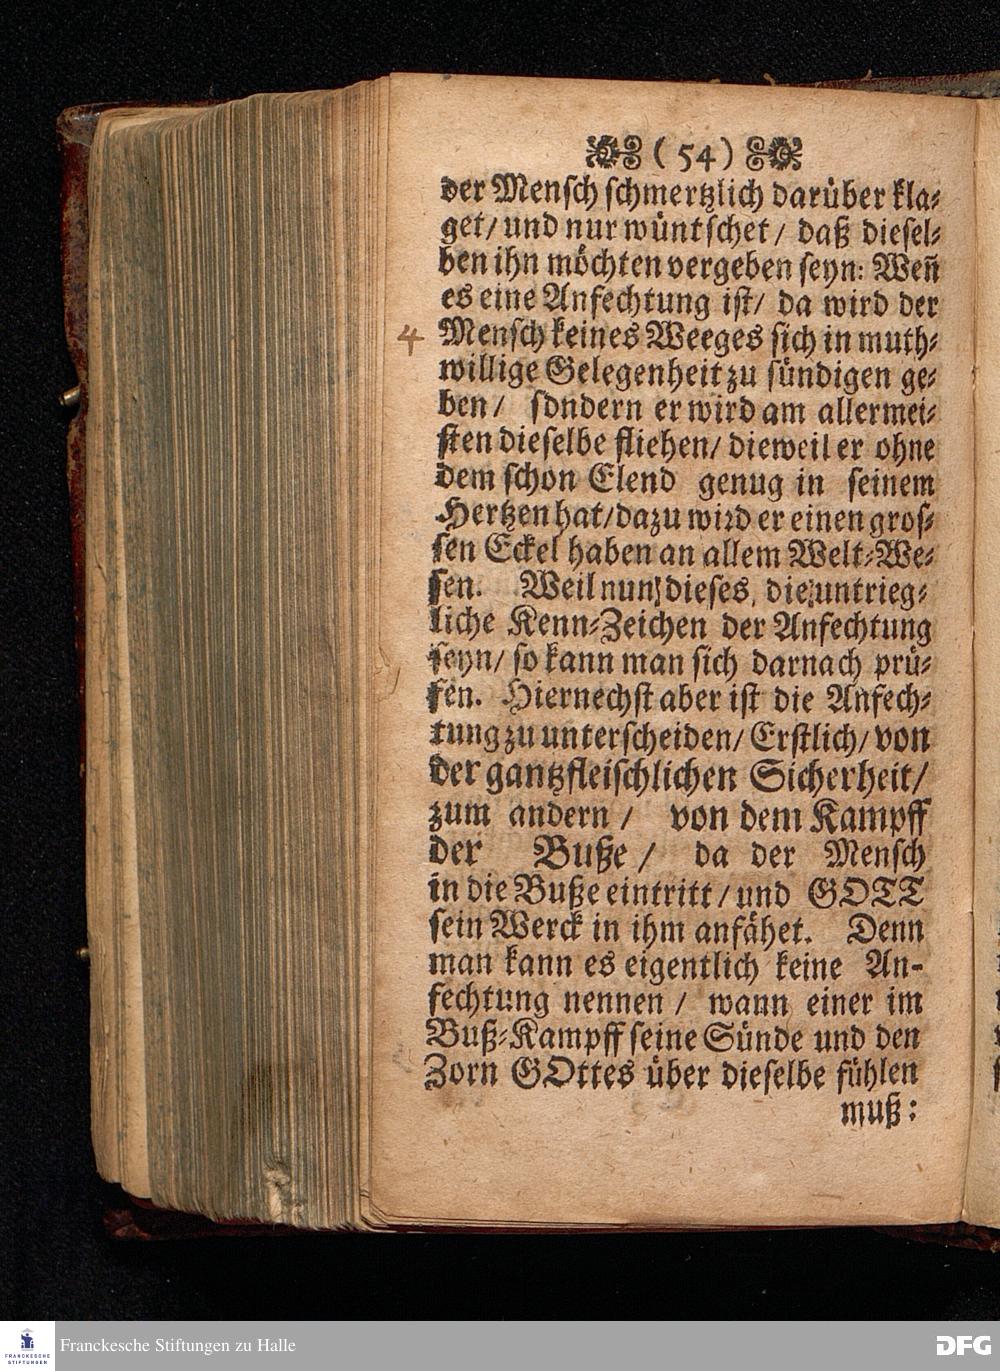 ( 54 )
der Mensch schmertzlich darüber kla-
get/ und nur wüntschet/ daß diesel-
ben ihn möchten vergeben seyn: Weñ
es eine Anfechtung ist/ da wird der
4 Mensch keines Weeges sich in muth-
willige Gelegenheit zu sündigen ge-
ben/ sondern er wird am allermei-
sten dieselbe fliehen/ dieweil er ohne
dem schon Elend genug in seinem
Hertzen hat/ dazu wird er einen gros-
sen Eckel haben an allem Welt-We-
sen. Weil nun dieses die untrieg-
liche Kenn-Zeichen der Anfechtung
seyn/ so kann man sich darnach prü-
fen. Hiernechst aber ist die Anfech-
tung zu unterscheiden/ Erstlich/ von
der gantzfleischlichen Sicherheit/
zum andern/ von dem Kampff
der Buße/ da der Mensch
in die Buße eintritt/ und GOTT
sein Werck in ihm anfähet. Denn
man kann es eigentlich keine An-
fechtung nennen/ wann einer im
Buß-Kampff seine Sünde und den
Zorn GOttes über dieselbe fühlen
muß:
FRANCKESCHE STIFTUNGEN Franckesche Stiftungen zu Halle DFG